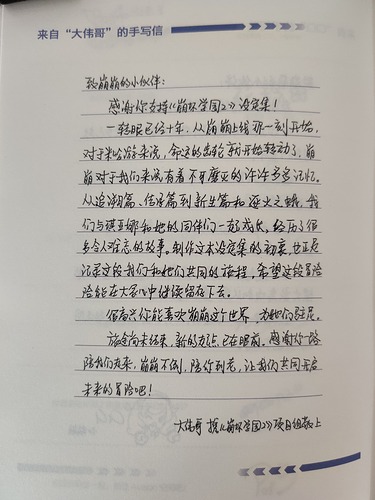 来自“大伟哥”的手写信
致崩崩的小伙伴：
感谢你支持《崩坏学园2》设定集！
一转眼已经十年，从崩崩上线那一刻开始，
对于米哈游来说，命运的齿轮就开始转动了，崩
崩对于我们来说有着不可磨灭的许许多多记忆。
从追溯篇、传承篇到新生篇和逐火之蛾，我
们与琪亚娜和她的同伴们一起成长，经历了很
多令人难忘的故事，制作这本设定集的初衷，也正是
记录这段我们和她们共同的旅程，希望这段冒险
能在大家心中继续留存下去。
很高兴你能喜欢崩崩这个世界，为她们驻足。
旅途尚未结束，新的起点已在眼前，感谢你一路
陪我们走来，崩崩不倒，陪你到老，让我们共同开启
未来的冒险吧！
大伟哥 携《崩坏学园2》项目组敬上